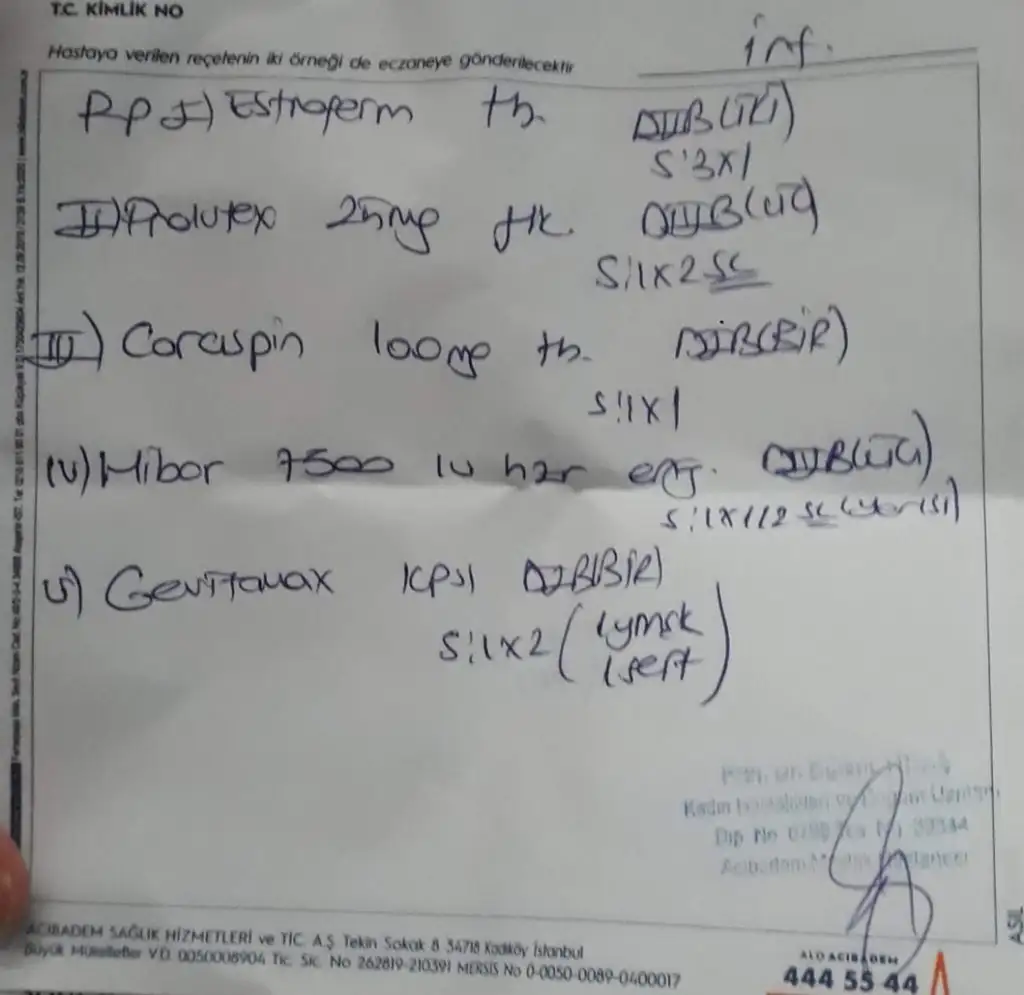 T.C. KİMLİK NO
inf.
Hastaya verilen reçetenin iki örneği de eczaneye gönderilecektir
Rp I) Estroferm tb. DIIB(İKİ)
S:3x1
II) Prolutex 25mg fk. DIIIB(ÜÇ)
S:1x2 sc
III) Coraspin 100mg tb. DIB(BİR)
S:1x1
IV) Hibor 7500 IU hzr enj. DIIIB(ÜÇ)
S:1x1/2 sc (yarısı)
V) Gevitamax kpsl DIB(BİR)
S:1x2 (1 ymşk
1 sert)
Kadın Hastalıkları ve Doğum Uzmanı
Dip No
ACIBADEM SAĞLIK HİZMETLERİ ve TİC. A.Ş. Tekin Sokak 8 34718 Kadıköy İstanbul
Büyük Mükellefler V.D. 0050008904 Tic. Sic. No 262819-210391 MERSİS No 0-0050-0089-0400017
ALO ACIBADEM
444 55 44